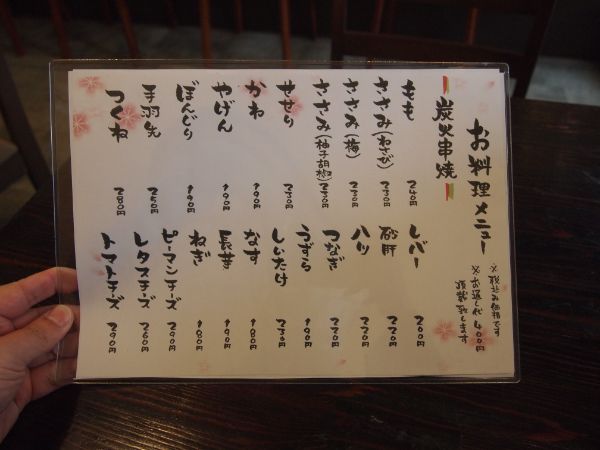 お料理メニュー
※税込み価格です
※お通し代400円
頂戴致します
炭火串焼
もも 240円
ささみ(わさび) 230円
ささみ(梅) 230円
ささみ(柚子胡椒) 230円
せせり 230円
かわ 190円
やげん 190円
ぼんじり 190円
手羽先 250円
つくね 280円
レバー 200円
砂肝 220円
ハツ 220円
つなぎ 220円
うずら
しいたけ 230円
なす 180円
長芋 190円
ねぎ 180円
ピーマンチーズ 290円
レタスチーズ 260円
トマトチーズ 290円